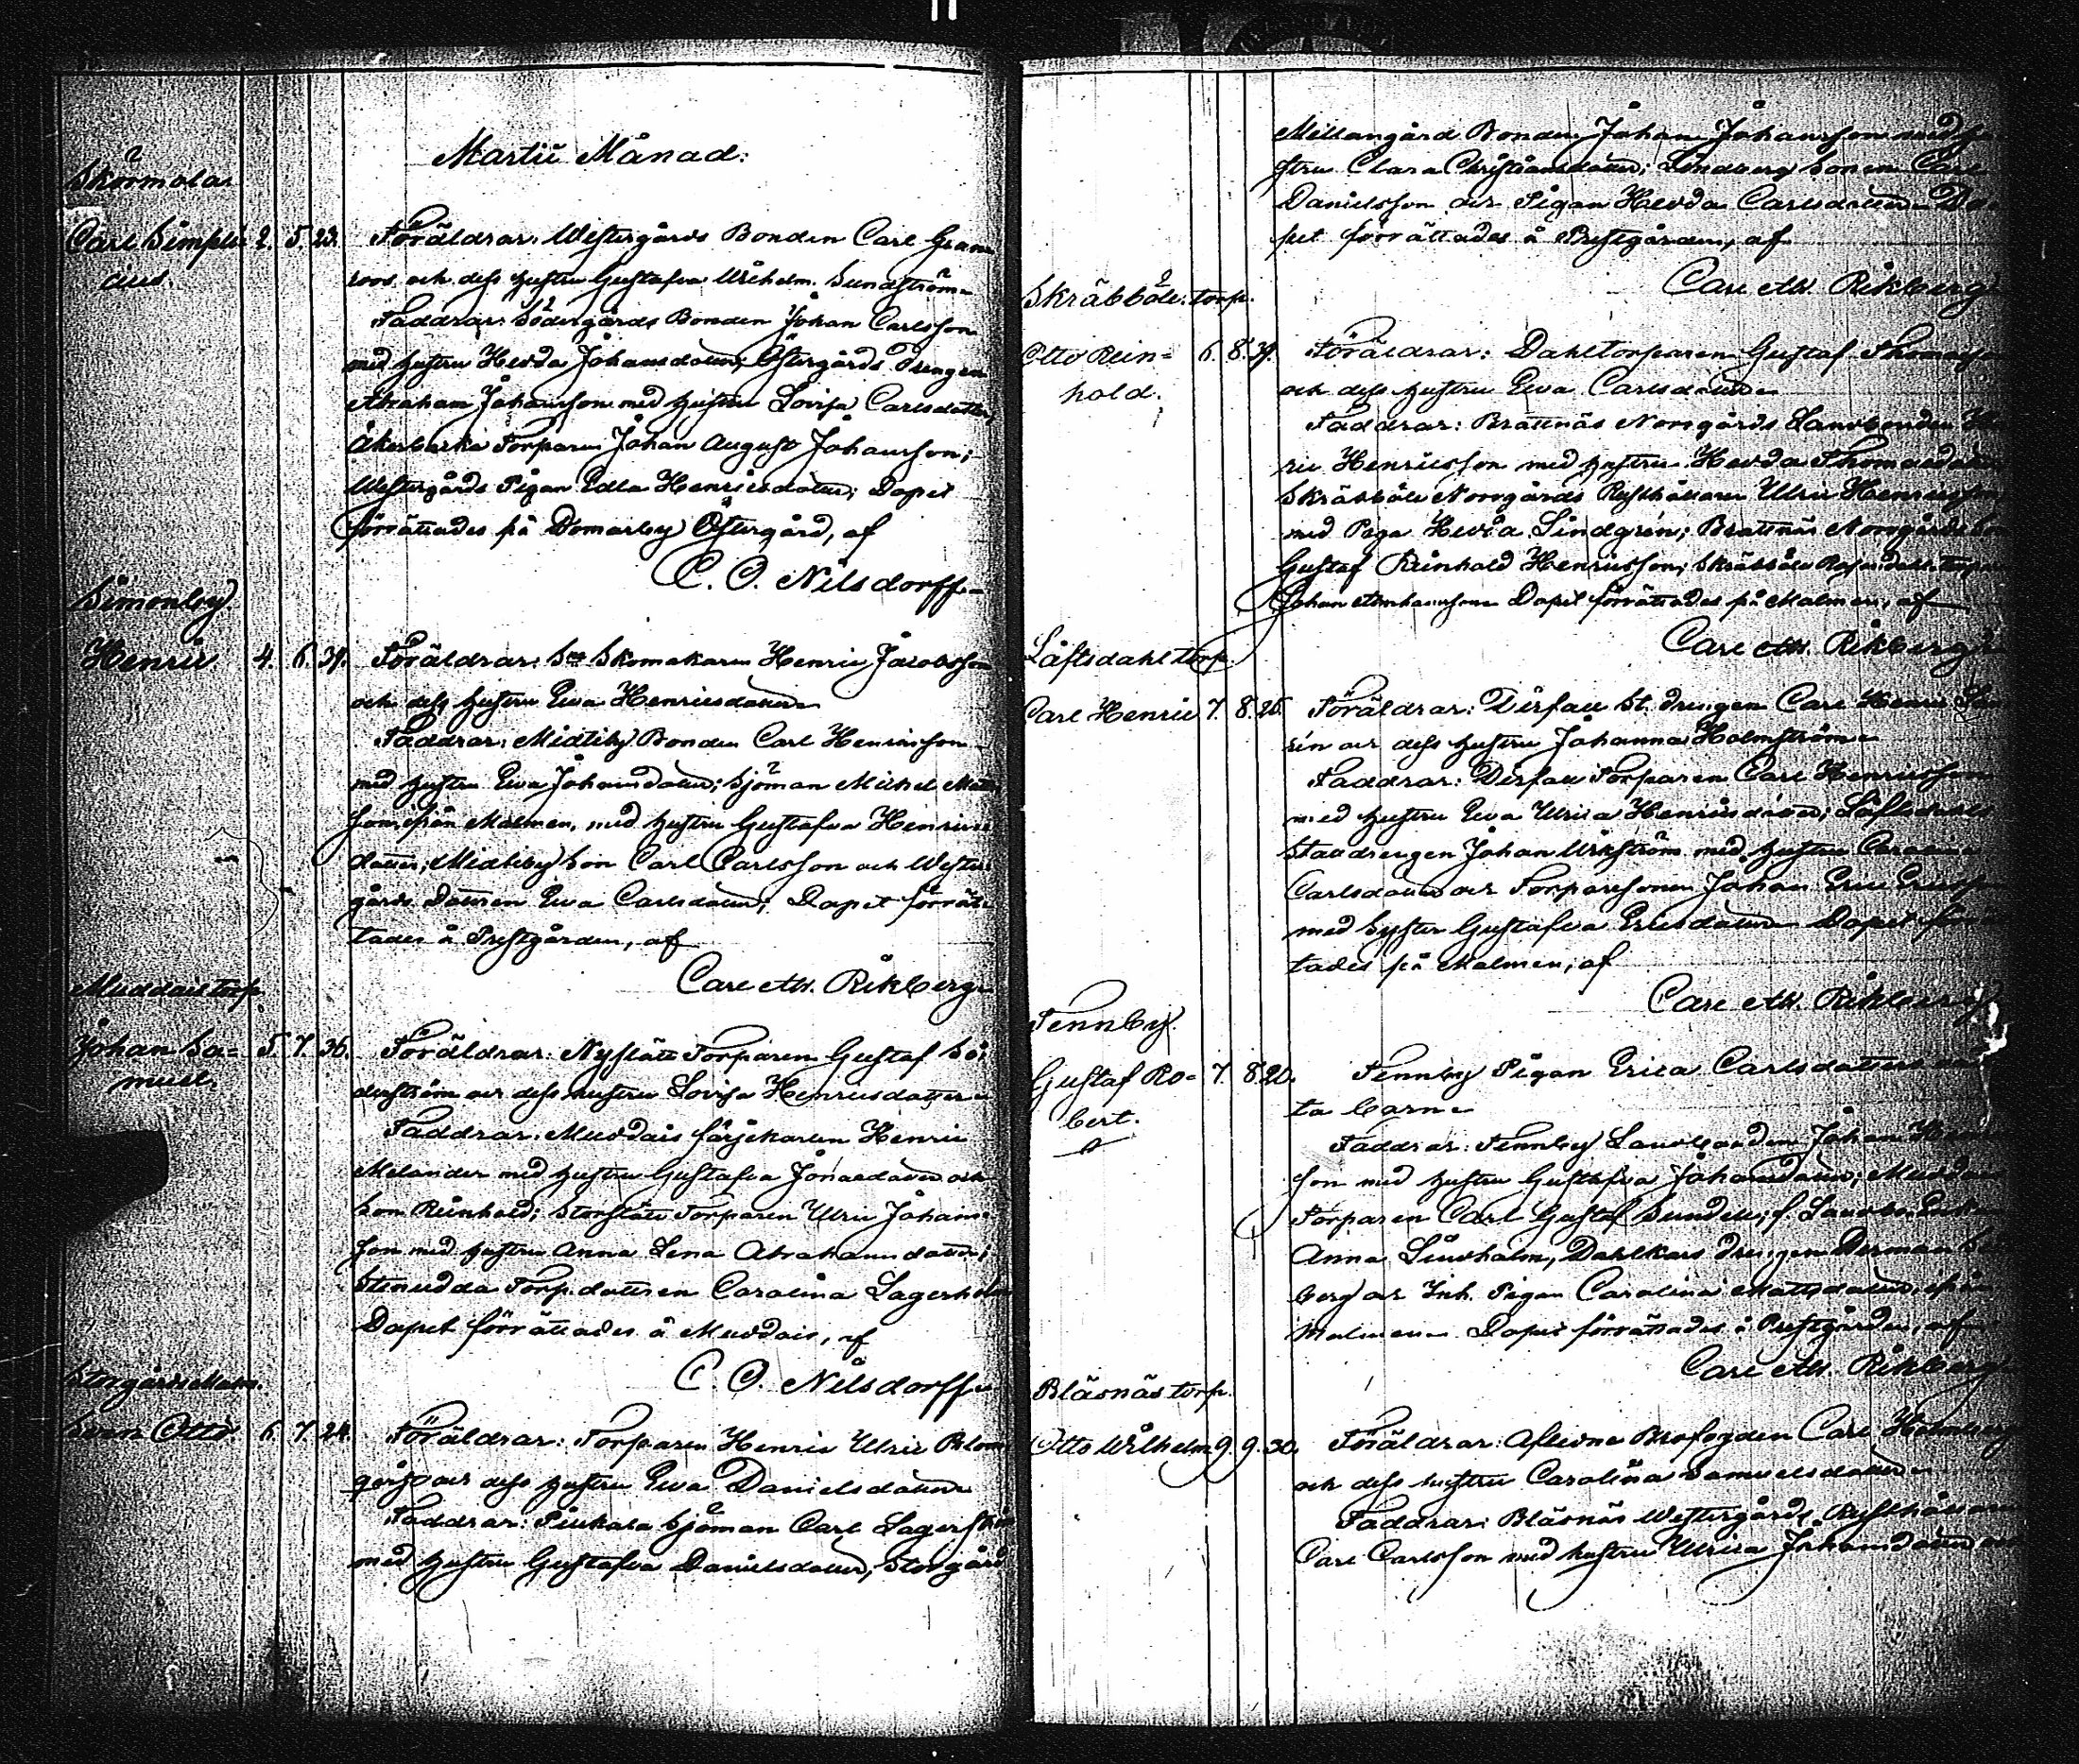 Martii Månad.
Skärmola.
Carl Simpli- 2. 5. 23. Föräldrar: Westergårds Bonden Carl Gran-
cius. roos och dess hustru Gustafva Wilhelm. Sundström.
Faddrar: Södergårds Bonden Johan Carlsson
med hustru Hedda Johansdotter; Östergårds Drengen
Abraham Johansson med hustru Lovisa Carlsdotter;
Åkerbacka Torparen Johan August Johansson;
Westergårds Pigan Edla Henricsdotter; Dopet
förrättades på Domarby Östergård, af
C. O. Nilsdorff.
Simonby
Henric 4. 6. 39. Föräldrar: Skomakaren Henric Jacobsson
och dess hustru Eva Henricsdotter
Faddrar: Midtiby Bonden Carl Henricsson
med hustru Eva Johansdotter; Sjöman Mickel Matts
son ifrån Malmen, med hustru Gustafva Henrics
dotter; Midtiby Son Carl Carlsson och Wester-
gårds Dottren Eva Carlsdotter; Dopet förrät-
tades å Prestgården, af
Carl Ath. Rikberg
Muddais torp
Johan Sa- 5. 7. 36. Föräldrar: Nyslätt Torparen Gustaf Sö-
muel. derström och dess hustru Lovisa Henricsdotter
Faddrar: Muddais färjekarlen Henric
Melander med hustru Gustafva Jonasdotter och
Son Reinhold; Storslätt Torparen Ulric Johans-
son med hustru Anna Lena Abrahamsdotter;
Stenudda Torp. dottren Carolina Lagerholm
Dopet förrättades å Muddais, af
C. O. Nilsdorff
Storgårds Malm.
Sven Otto 6. 7. 24. Föräldrar: Torparen Henric Ulric Blom
qvist och dess hustru Eva Danielsdotter
Faddrar: Piukala Sjöman Carl Lagerström
med hustru Gustafva Danielsdotter; Storgård
Mellangård Bonden Johan Johansson med
hustru Clara Christiansdotter; Lindberg Sonen Carl
Danielsson och Pigan Hedda Carlsdotter Do-
pet förrättades å Prestgården, af
Carl Ath. Rikberg
Skräbböle torp.
Otto Rein- 6. 8. 39. Föräldrar: Dahltorparen Gustaf Thomasson
hold. och dess hustru Eva Carlsdotter
Faddrar: Brattnäs Norrgårds Landbonden Hen
ric Henricsson med hustru Hedda Thomasdotter
Skräbböle Norrgårds Rusthållaren Ulric Henricsson
med Piga Hedda Lindgrén; Brattnäs Norrgårds Son
Gustaf Reinhold Henricsson; Skräbböle
Johan Abrahamsson Dopet förrättades på Malmen, af
Carl Ath. Rikberg
Löftsdahl torp
Carl Henric 7. 8. 26. Föräldrar: Pirfalt St. drengen Carl Henric
rén och dess hustru Johanna Holmström
Faddrar: Torparen Carl Henricsson
med hustru Eva Ulrica Henricsdotter; Löftsdahls
Stalldrengen Johan Wikström med hustru Carolina
Carlsdotter och Torparesonen Johan Eric Ericsson
med Syster Gustafva Ericsdotter Dopet förrät
tades på Malmen, af
Carl Ath. Rikberg
Tennby.
Gustaf Ro- 7. 8. 20. Tennby Pigan Erica Carlsdotters
bert. ta barn
Faddrar: Tennby Landbonden Johan Henrics
son med hustru Gustafva Johansdotter; Muddais
Torparen Carl Gustaf Sundell; f.
Anna Lindholm, Dahlkars drengen Herman
berg och Inh. Pigan Carolina Mattsdotter ifrån
Malmen Dopet förrättades å Prestgården, af
Carl Ath. Rikberg
Bläsnäs torp.
Otto Wilhelm 9. 9. 30. Föräldrar: Aflidne Brofogden Carl Holmberg
och dess hustru Carolina Samuelsdotter
Faddrar: Bläsnäs Westergårds Rusthållaren
Carl Carlsson med hustru Ulrica Johansdotter och